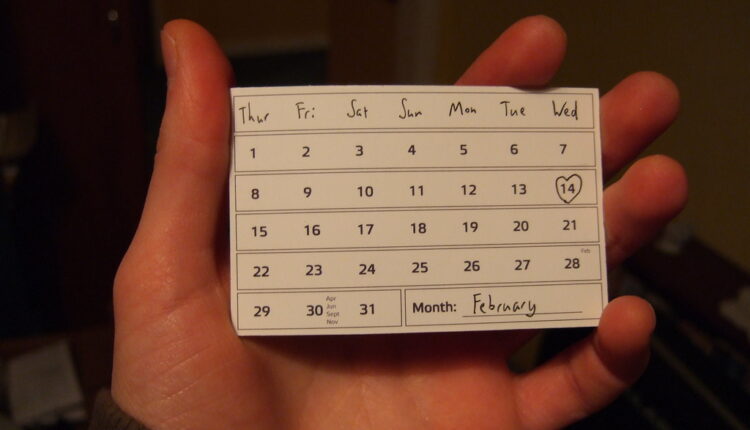 Thur Fri Sat Sun Mon Tue Wed
1 2 3 4 5 6 7
8 9 10 11 12 13 14
15 16 17 18 19 20 21
22 23 24 25 26 27 28 Feb
29 30 Apr Jun Sept Nov 31
Month: February